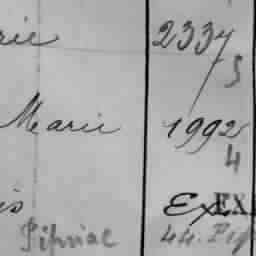 rie 2337
5
Marie 1992
4
is Ex EX
44. Pip